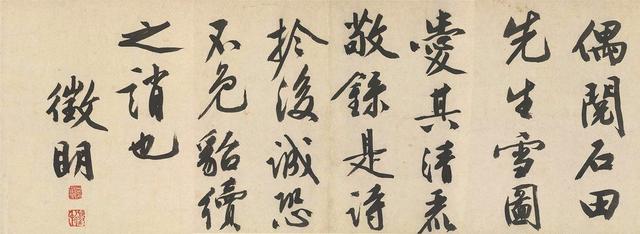 偶閱石田
先生雪圖
愛其清麗
敬錄是詩
於後誠恐
不免貂續
之誚也
徵明